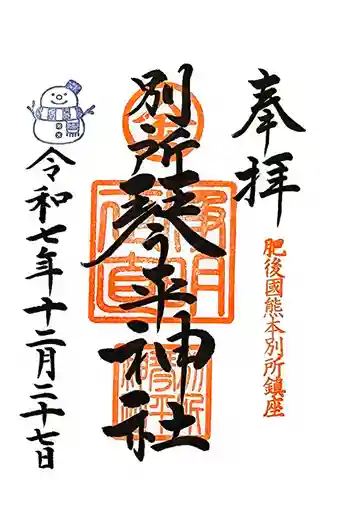 奉拝
肥後國熊本別所鎮座
別所琴平神社
令和七年十二月二十七日